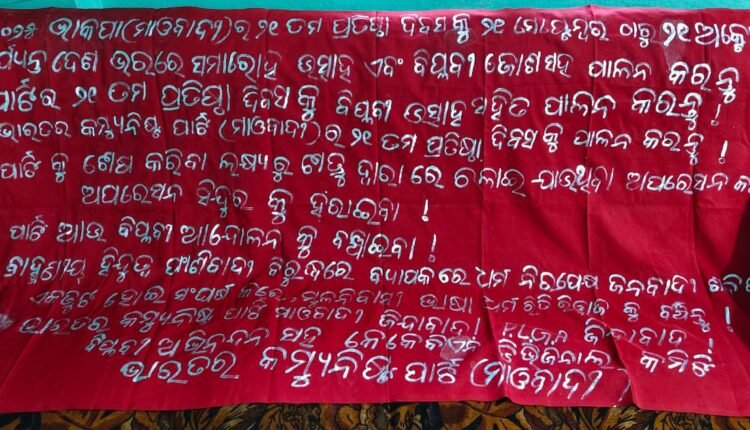 ୨୦୨୫ ଭାକପା(ମାଓବାଦୀ)ର ୨୧ ତମ ପ୍ରତିଷ୍ଠା ଦିବସ କୁ ୨୧ ସେପ୍ଟେମ୍ବର ଠାରୁ ୨୧ ଅକ୍ଟୋ
ର୍ଯ୍ୟନ୍ତ ଦେଶ ଭରରେ ସମାରୋହ ଉତ୍ସାହ ଏବଂ ବିପ୍ଳବୀ ଜୋଶ ସହ ପାଳନ କରନ୍ତୁ
ପାର୍ଟିର ୨୧ ତମ ପ୍ରତିଷ୍ଠା ଦିବସ କୁ ବିପ୍ଳବୀ ଉତ୍ସାହ ସହିତ ପାଳନ କରନ୍ତୁ !
ଭାରତର କମ୍ୟୁନିଷ୍ଟ ପାର୍ଟି (ମାଓବାଦୀ) ର ୨୧ ତମ ପ୍ରତିଷ୍ଠା ଦିବସ କୁ ପାଳନ କରନ୍ତୁ !
ପାର୍ଟି କୁ ଶେଷ କରିବା ଲକ୍ଷ୍ୟରୁ ଶତ୍ରୁ ଦ୍ୱାରା ରେ ଚଳାଇ ଯାଉଥିବା ଅପରେସନ କ
ଅପରେସନ ସିନ୍ଦୁର କୁ ହରାଇବା !
ପାର୍ଟି ଆଉ ବିପ୍ଳବୀ ଆନ୍ଦୋଳନ କୁ ବଞ୍ଚାଇବା !
ବ୍ରାହ୍ମଣୀୟ ହିନ୍ଦୁତ୍ୱ ଫାଶୀବାଦୀ ବିରୁଦ୍ଧରେ ବ୍ୟାପକ ରେ ଧର୍ମ ନିରପେକ୍ଷ ଜନବାଦୀ
ଏକଜୁଟ ହୋଇ ସଂଘର୍ଷ କରିବେ ମୂଳନିବାସୀ ଭାଷା ଧର୍ମ ରିତି ରିବାଜ କୁ ବଞ୍ଚାନ୍ତୁ !
ଭାରତର କମ୍ୟୁନିଷ୍ଟ ପାର୍ଟି ମାଓବାଦୀ ଜିନ୍ଦାବାଦ! P.L.G.A ଜିନ୍ଦାବାଦ !
ବିପ୍ଳବୀ ଅଭିନନ୍ଦନ ସହ କେକେବିଏନ ଡିଭିଜନାଲ କମିଟି
ଭାରତର କମ୍ୟୁନିଷ୍ଟ ପାର୍ଟି (ମାଓବାଦୀ)